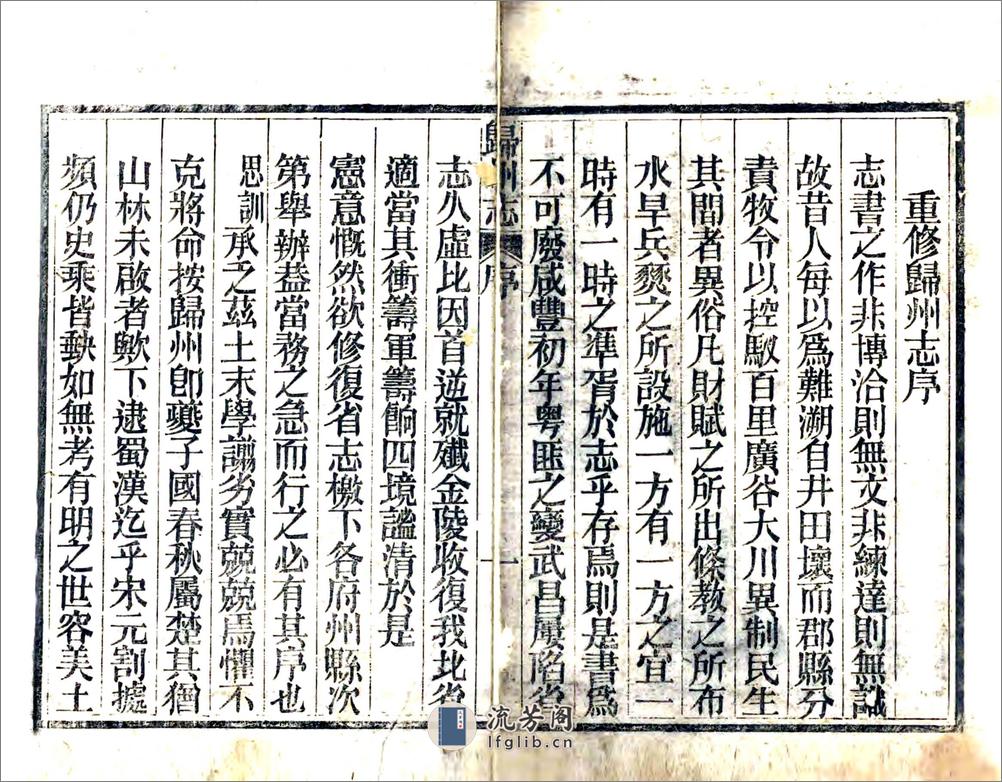 重修歸州志序
志書之作非博洽則無文非練達則無識
故昔人每以為難溯自井田壞而郡縣分
責牧令以控馭百里廣谷大川異制民生
其間者異俗凡財賦之所出條教之所布
水旱兵燹之所設施一方有一方之宜一
時有一時之準胥於志乎存焉則是書為
不可廢咸豐初年粵匪之變武昌屢陷省
歸州志
序
一
志久虛比因首逆就殲金陵收復我北省
適當其衝籌軍籌餉四境謐清於是
憲意慨然欲修復省志檄下各府州縣次
第舉辦蓋當務之急而行之必有其序也
思訓承之茲土末學譾劣實兢兢焉懼不
克將命按歸州卽夔子國春秋屬楚其猶
山林未啟者歟下逮蜀漢迄乎宋元割據
頻仍史乘皆缺如無考有明之世容美土
流芳閣
lfglib.cn